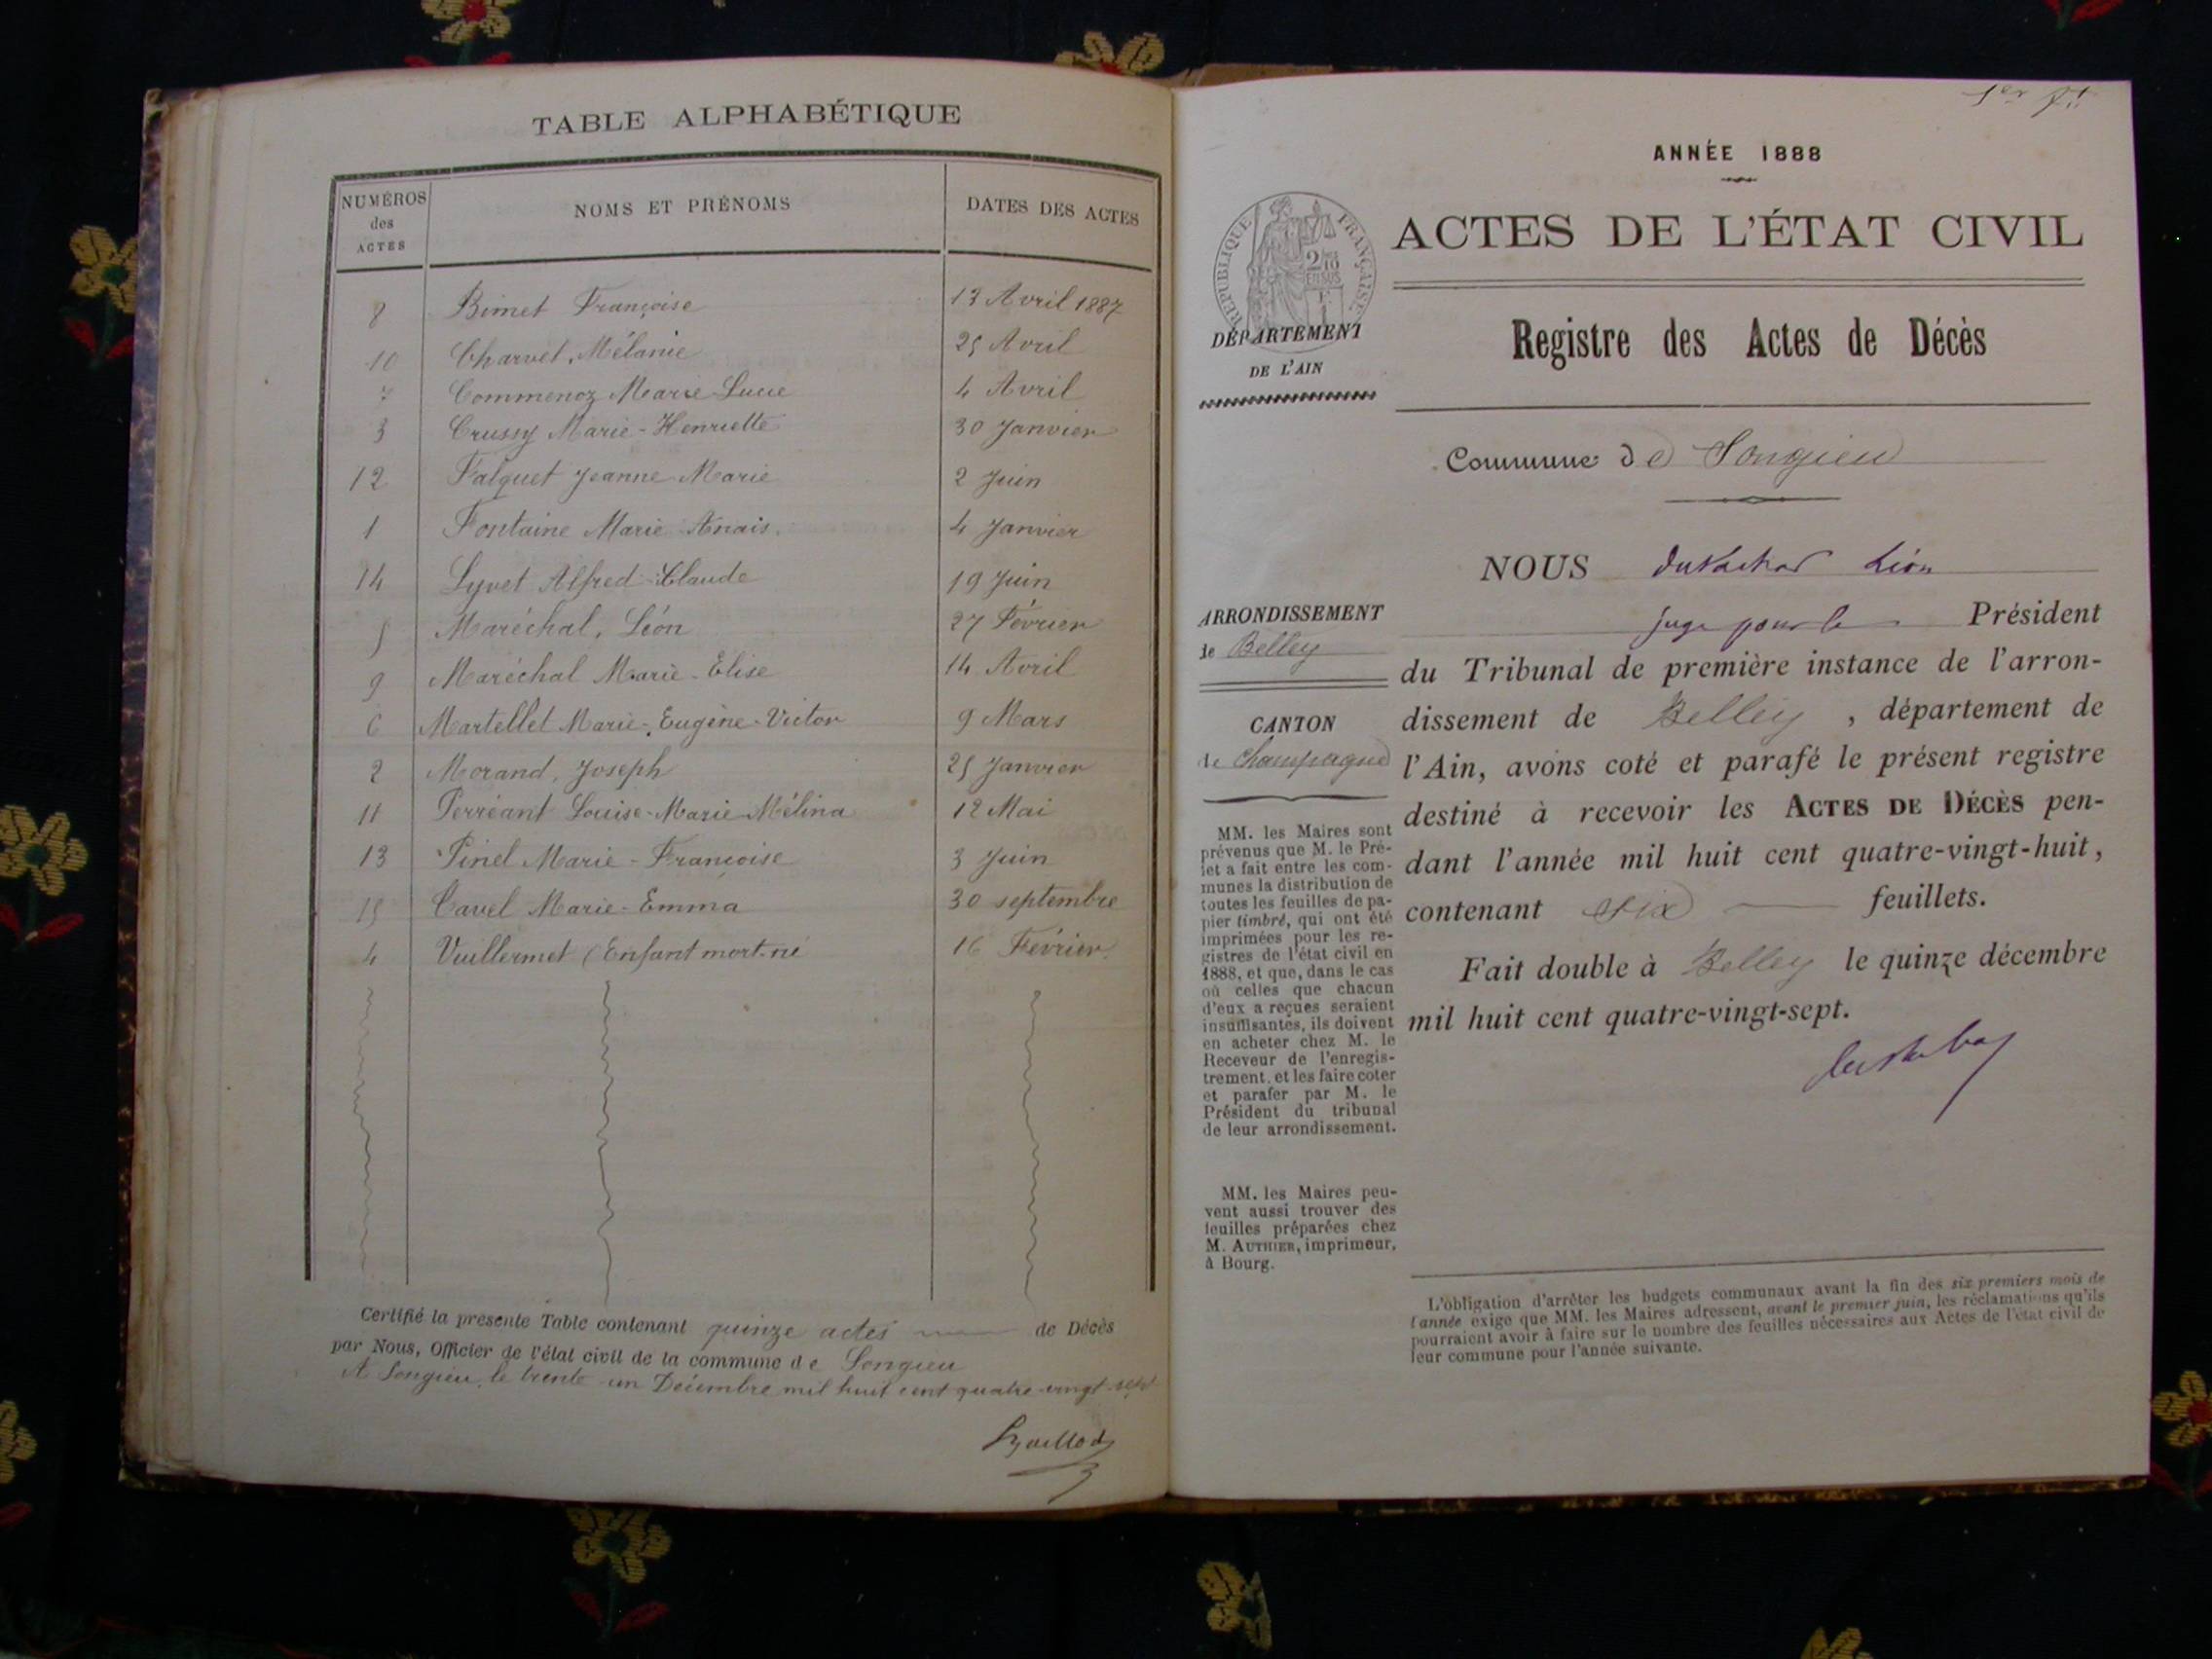 TABLE ALPHABÉTIQUE
NUMÉROS des ACTES NOMS ET PRÉNOMS DATES DES ACTES
8 Bimet Françoise 13 Avril 1887
10 Charvet, Mélanie 25 Avril
7 Commenoz Marie-Lucie 4 Avril
3 Crussy Marie-Henriette 30 Janvier
12 Falquet Jeanne Marie 2 Juin
1 Fontaine Marie Anais. 4 Janvier
14 Lyvet Alfred-Claude 19 Juin
5 Maréchal, Léon 27 Février
9 Maréchal Marie-Elise 14 Avril
6 Martellet Marie-Eugène-Victor 9 Mars
2 Morand, Joseph 25 Janvier
11 Perréant Louise-Marie-Mélina 12 Mai
13 Pinel Marie-Françoise 3 Juin
15 Cavel Marie-Emma 30 septembre
4 Vuillermet (Enfant mort-né 16 Février.
Certifié la présente Table contenant quinze actes de Décès
par Nous, Officier de l'état civil de la commune de Songieu
A Songieu, le trente-un Décembre mil huit cent quatre-vingt-sept
1er
ANNÉE 1888
RÉPUBLIQUE FRANÇAISE
2/10 EN SUS
ACTES DE L'ÉTAT CIVIL
Registre des Actes de Décès
DÉPARTEMENT
DE L'AIN
Commune de Songieu
NOUS Léon
ARRONDISSEMENT
de Belley
CANTON
de Champagne
MM. les Maires sont
prévenus que M. le Pré-
fet a fait entre les com-
munes la distribution de
toutes les feuilles de pa-
pier timbré, qui ont été
imprimées pour les re-
gistres de l'état civil en
1888, et que, dans le cas
où celles que chacun
d'eux a reçues seraient
insuffisantes, ils doivent
en acheter chez M. le
Receveur de l'enregis-
trement, et les faire coter
et parafer par M. le
Président du tribunal
de leur arrondissement.
MM. les Maires peu-
vent aussi trouver des
feuilles préparées chez
M. AUTHIER, imprimeur,
à Bourg.
juge pour le Président
du Tribunal de première instance de l'arron-
dissement de Belley, département de
l'Ain, avons coté et parafé le présent registre
destiné à recevoir les ACTES DE DÉCÈS pen-
dant l'année mil huit cent quatre-vingt-huit,
contenant six feuillets.
Fait double à Belley le quinze décembre
mil huit cent quatre-vingt-sept.
L'obligation d'arrêter les budgets communaux avant la fin des six premiers mois de
l'année exige que MM. les Maires adressent, avant le premier juin, les réclamations qu'ils
pourraient avoir à faire sur le nombre des feuilles nécessaires aux Actes de l'état civil de
leur commune pour l'année suivante.